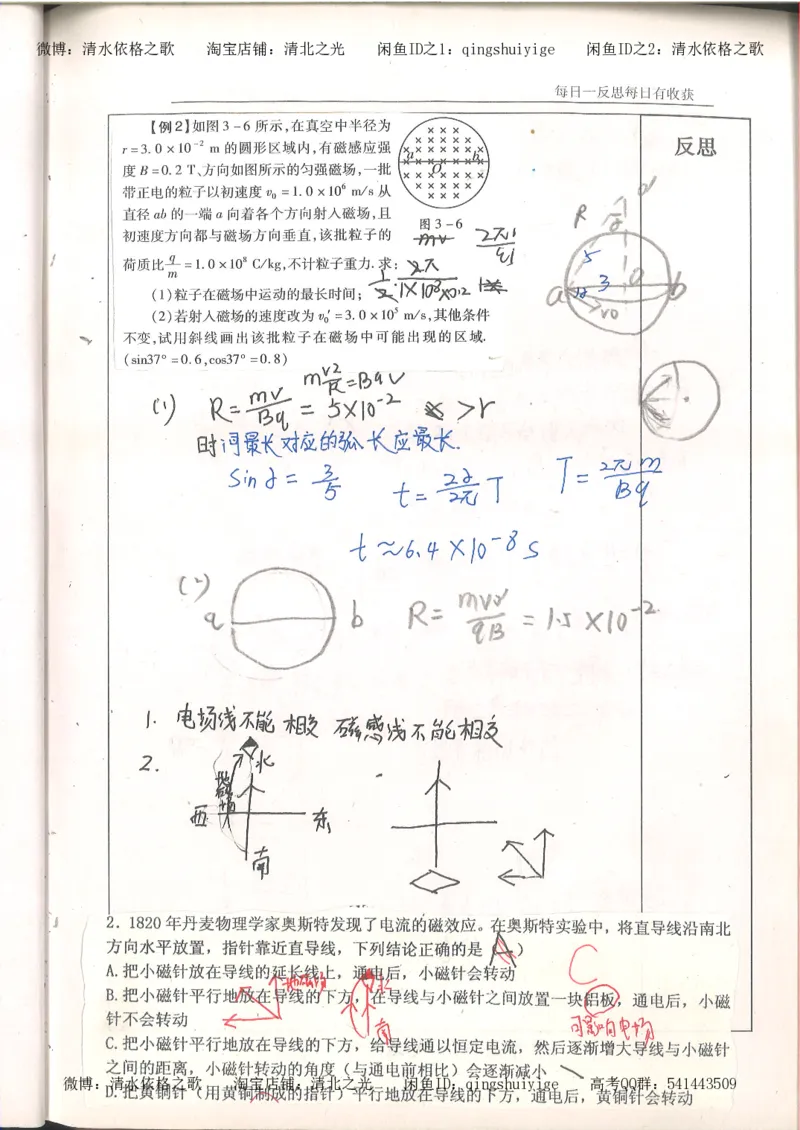 微博：清水依格之歌 淘宝店铺：清北之光 闲鱼ID之1：qingshuiyige 闲鱼ID之2：清水依格之歌
每日一反思每日有收获
反思
【例2】如图3-6所示,在真空中半径为
r=3.0×10⁻² m 的圆形区域内,有磁感应强
度 B=0.2 T、方向如图所示的匀强磁场,一批
带正电的粒子以初速度 v₀=1.0×10⁶ m/s 从
直径 ab 的一端 a 向着各个方向射入磁场,且
初速度方向都与磁场方向垂直,该批粒子的
荷质比 q/m =1.0×10⁸ C/kg,不计粒子重力.求:
(1)粒子在磁场中运动的最长时间;
(2)若射入磁场的速度改为 v₀′=3.0×10⁵ m/s,其他条件
不变,试用斜线画出该批粒子在磁场中可能出现的区域.
(sin37°=0.6,cos37°=0.8)
a b
O
图3-6
R
5
3
a O b
v0
mv²/R=Bqv
(1) R=mv/Bq=5×10⁻² >r
时间最长对应的弧长应最长.
sin∂=3/5 t=2∂/2π T T=2πm/Bq
t≈6.4×10⁻⁸ s
(2)
a b R=mv₀′/qB=1.5×10⁻²
1. 电场线不能相交 磁感线不能相交
2.
北
西 东
南
2．1820 年丹麦物理学家奥斯特发现了电流的磁效应。在奥斯特实验中，将直导线沿南北
方向水平放置，指针靠近直导线，下列结论正确的是（A）
C
A.把小磁针放在导线的延长线上，通电后，小磁针会转动
地磁场
北
南
B.把小磁针平行地放在导线的下方，在导线与小磁针之间放置一块铝板，通电后，小磁
针不会转动
C.把小磁针平行地放在导线的下方，给导线通以恒定电流，然后逐渐增大导线与小磁针
之间的距离，小磁针转动的角度（与通电前相比）会逐渐减小
微博：清水依格之歌 淘宝店铺：清北之光 闲鱼ID：qingshuiyige 高考QQ群：541443509
D.把黄铜针（用黄铜制成的指针）平行地放在导线的下方，通电后，黄铜针会转动